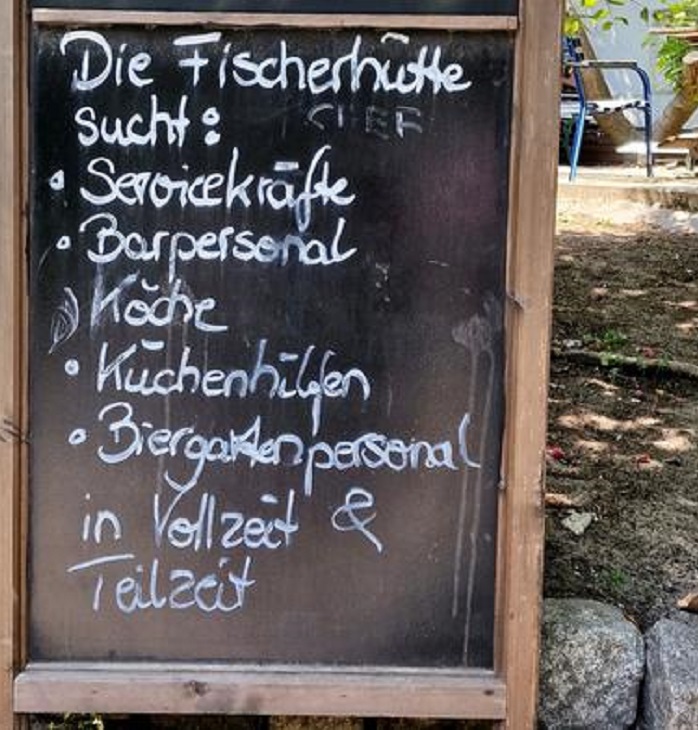 Die Fischerhütte
sucht:
• Servicekräfte
• Barpersonal
Köche
• Küchenhilfen
• Biergartenpersonal
in Vollzeit &
Teilzeit